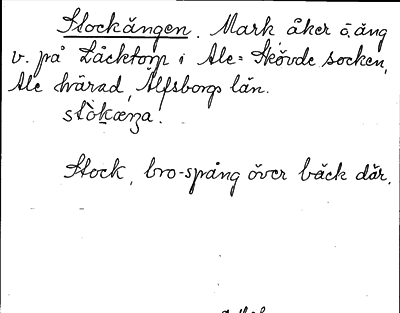 Stockängen. Mark åker o, äng
v. på Läcktorp i Ale-Skövde socken,
Ale härad, Älfsborgs län.
Stock, bro-spång över bäck där.